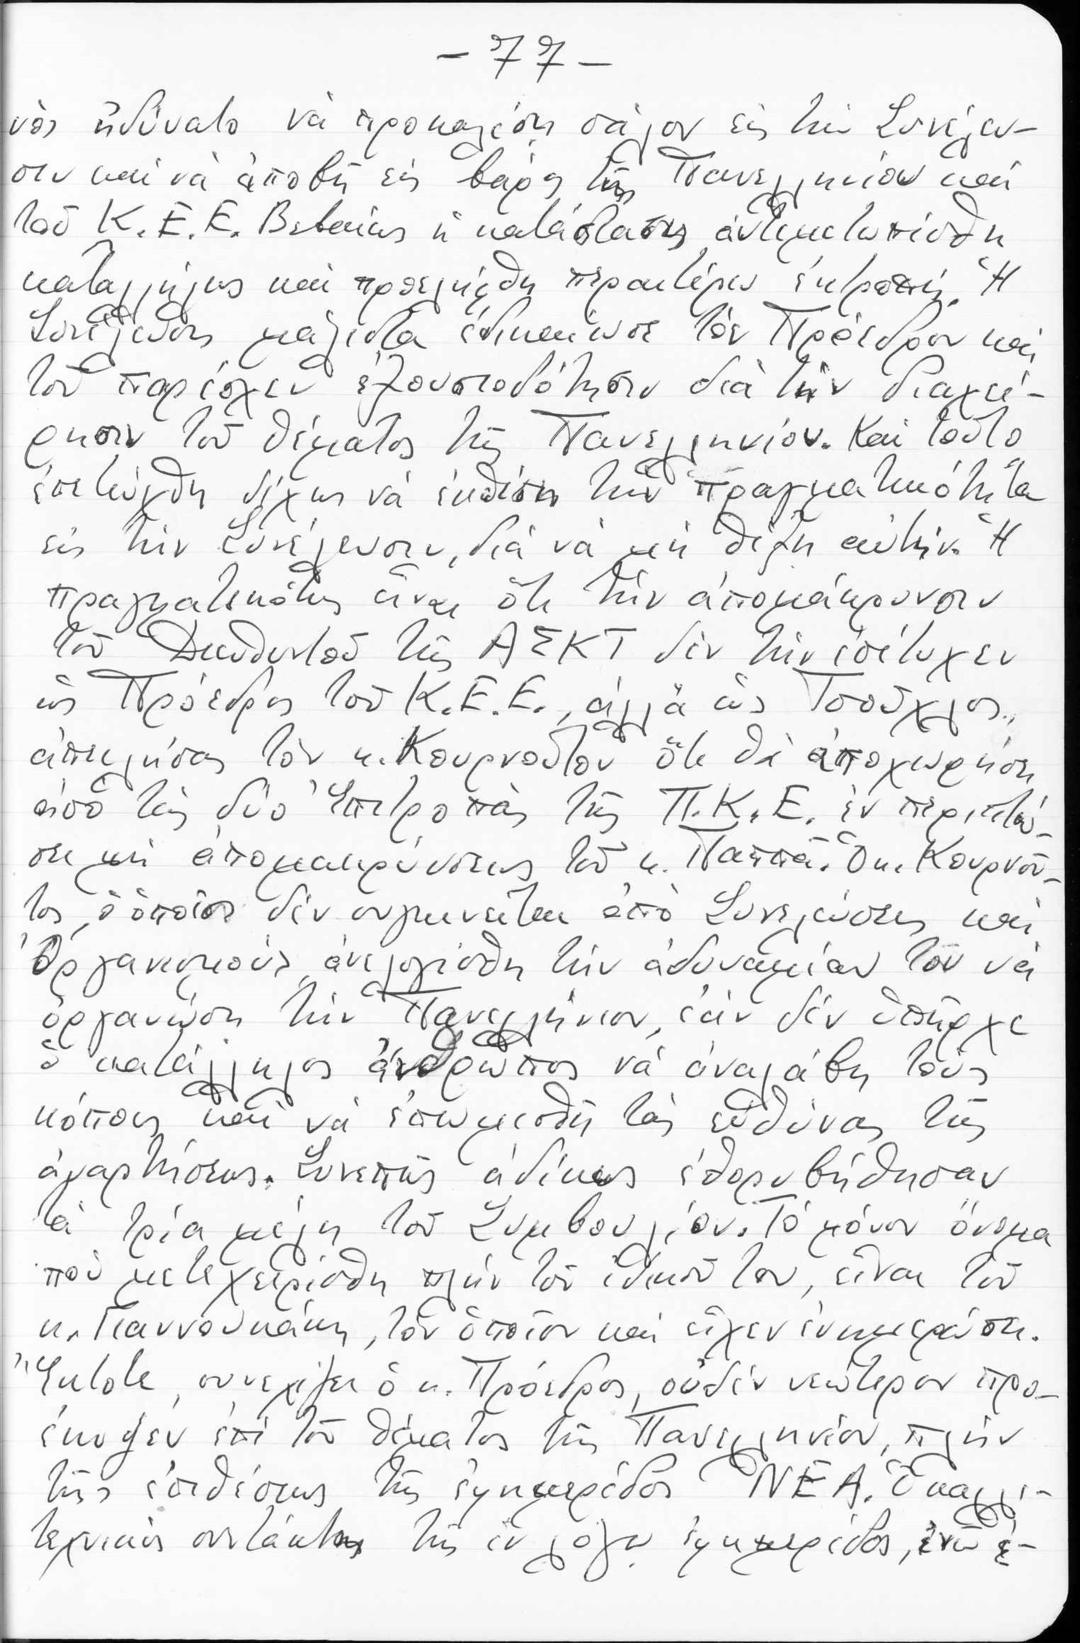 - 77 -
νὸς ἠδύνατο νὰ προκαλέσῃ σάλον εἰς τὴν Συνέλευ-
σιν καὶ νὰ ἀποβῇ εἰς βάρος τῆς Πανελληνίου καὶ
τοῦ Κ.Ε.Ε. Βεβαίως ἡ κατάστασις ἀντιμετωπίσθη
καταλλήλως καὶ προελήφθη περαιτέρω ἐκτροπή. Ἡ
Συνέλευσις μάλιστα ἐδικαίωσε τὸν Πρόεδρον καὶ
τοῦ παρέσχεν ἐξουσιοδότησιν διὰ τὴν διαχεί-
ρησιν τοῦ θέματος τῆς Πανελληνίου. Καὶ τοῦτο
ἐπετεύχθη δίχως νὰ ἐκθέσῃ τὴν πραγματικότητα
εἰς τὴν Συνέλευσιν, διὰ νὰ μὴ θίξῃ αὐτήν. Ἡ
πραγματικότης εἶναι ὅτι τὴν ἀπομάκρυνσιν
τοῦ Διευθυντοῦ τῆς ΑΣΚΤ δὲν τὴν ἐπέτυχεν
ὡς Πρόεδρος τοῦ Κ.Ε.Ε., ἀλλὰ ὡς Τσοῦχλος,
ἀπειλήσας τὸν κ. Κουρνοῦτον ὅτι θὰ ἀποχωρήσῃ
ἀπὸ τὰς δύο Ἐπιτροπὰς τῆς Π.Κ.Ε. ἐν περιπτώ-
σει μὴ ἀπομακρύνσεως τοῦ κ. Παππᾶ. Ὁ κ. Κουρνοῦ-
τος, ὁ ὁποῖος δὲν συγκινεῖται ἀπὸ Συνελεύσεις καὶ
Ὀργανισμούς, ἀνελογίσθη τὴν ἀδυναμίαν του νὰ
ὀργανώσῃ τὴν Πανελλήνιον, ἐὰν δὲν ὑπῆρχε
ὁ κατάλληλος ἄνθρωπος νὰ ἀναλάβῃ τοὺς
κόπους καὶ νὰ ἐπωμισθῇ τὰς εὐθύνας τῆς
ἀναρτήσεως. Συνεπῶς ἀδίκως ἐθορυβήθησαν
τὰ τρία μέλη τοῦ Συμβουλίου. Τὸ μόνον ὄνομα
ποὺ μετεχειρίσθη πλὴν τοῦ ἰδικοῦ του, εἶναι τοῦ
κ. Γιαννουκάκη, τὸν ὁποῖον καὶ εἶχεν ἐνημερώσει.
Ἔκτοτε, συνεχίζει ὁ κ. Πρόεδρος, οὐδὲν νεώτερον προ-
έκυψεν ἐπὶ τοῦ θέματος τῆς Πανελληνίου, πλὴν
τῆς ἐπιθέσεως τῆς ἐφημερίδος ΝΕΑ. Ὁ καλλι-
τεχνικὸς συντάκτης τῆς ἐν λόγῳ ἐφημερίδος, ἐνῶ ἐ-